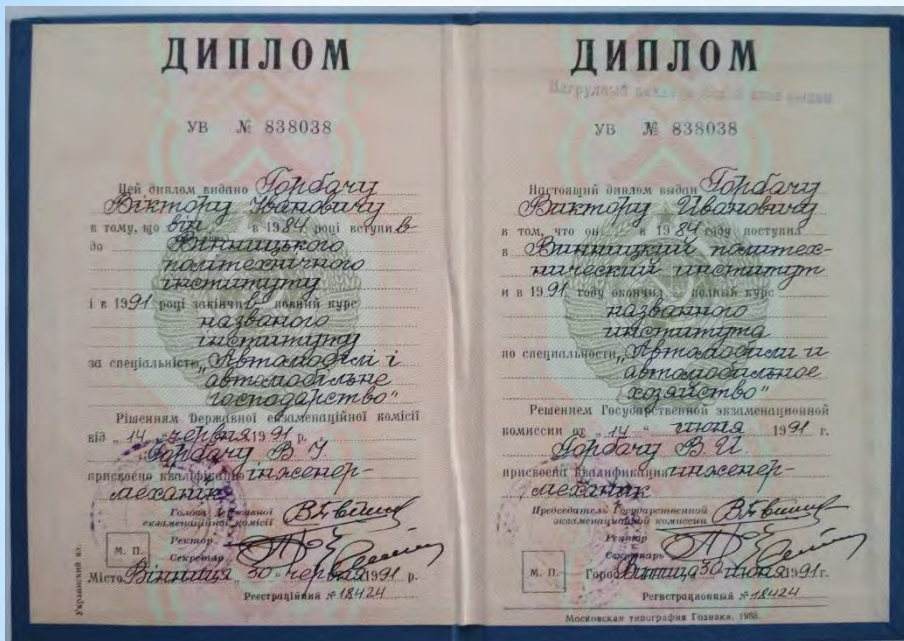 ДИПЛОМ
УВ № 838038
Цей диплом видано Горбачу
Віктору Івановичу
в тому, що він в 1984 році вступив
до Вінницького
політехнічного
інституту
і в 1991 році закінчив повний курс
названого
інституту
за спеціальністю „Автомобілі і
автомобільне
господарство"
Рішенням Державної екзаменаційної комісії
від „14" червня 1991 р.
Горбачу В. І.
присвоєно кваліфікацію інженер-
механік
Голова Державної
екзаменаційної комісії
Ректор
Секретар
М. П.
Місто Вінниця „30" червня 1991 р.
Реєстраційний № 18424
Украинский яз.
ДИПЛОМ
Нагрудный знак выдан
УВ № 838038
Настоящий диплом выдан Горбачу
Виктору Ивановичу
в том, что он в 1984 году поступил
в Винницкий политех-
нический институт
и в 1991 году окончил полный курс
названного
института
по специальности „Автомобили и
автомобильное
хозяйство"
Решением Государственной экзаменационной
комиссии от „14" июня 1991 г.
Горбачу В. И.
присвоена квалификация инженер-
механик
Председатель Государственной
экзаменационной комиссии
Ректор
Секретарь
М. П.
Город Винница 30 июня 1991 г.
Регистрационный № 18424
Московская типография Гознака. 1988.